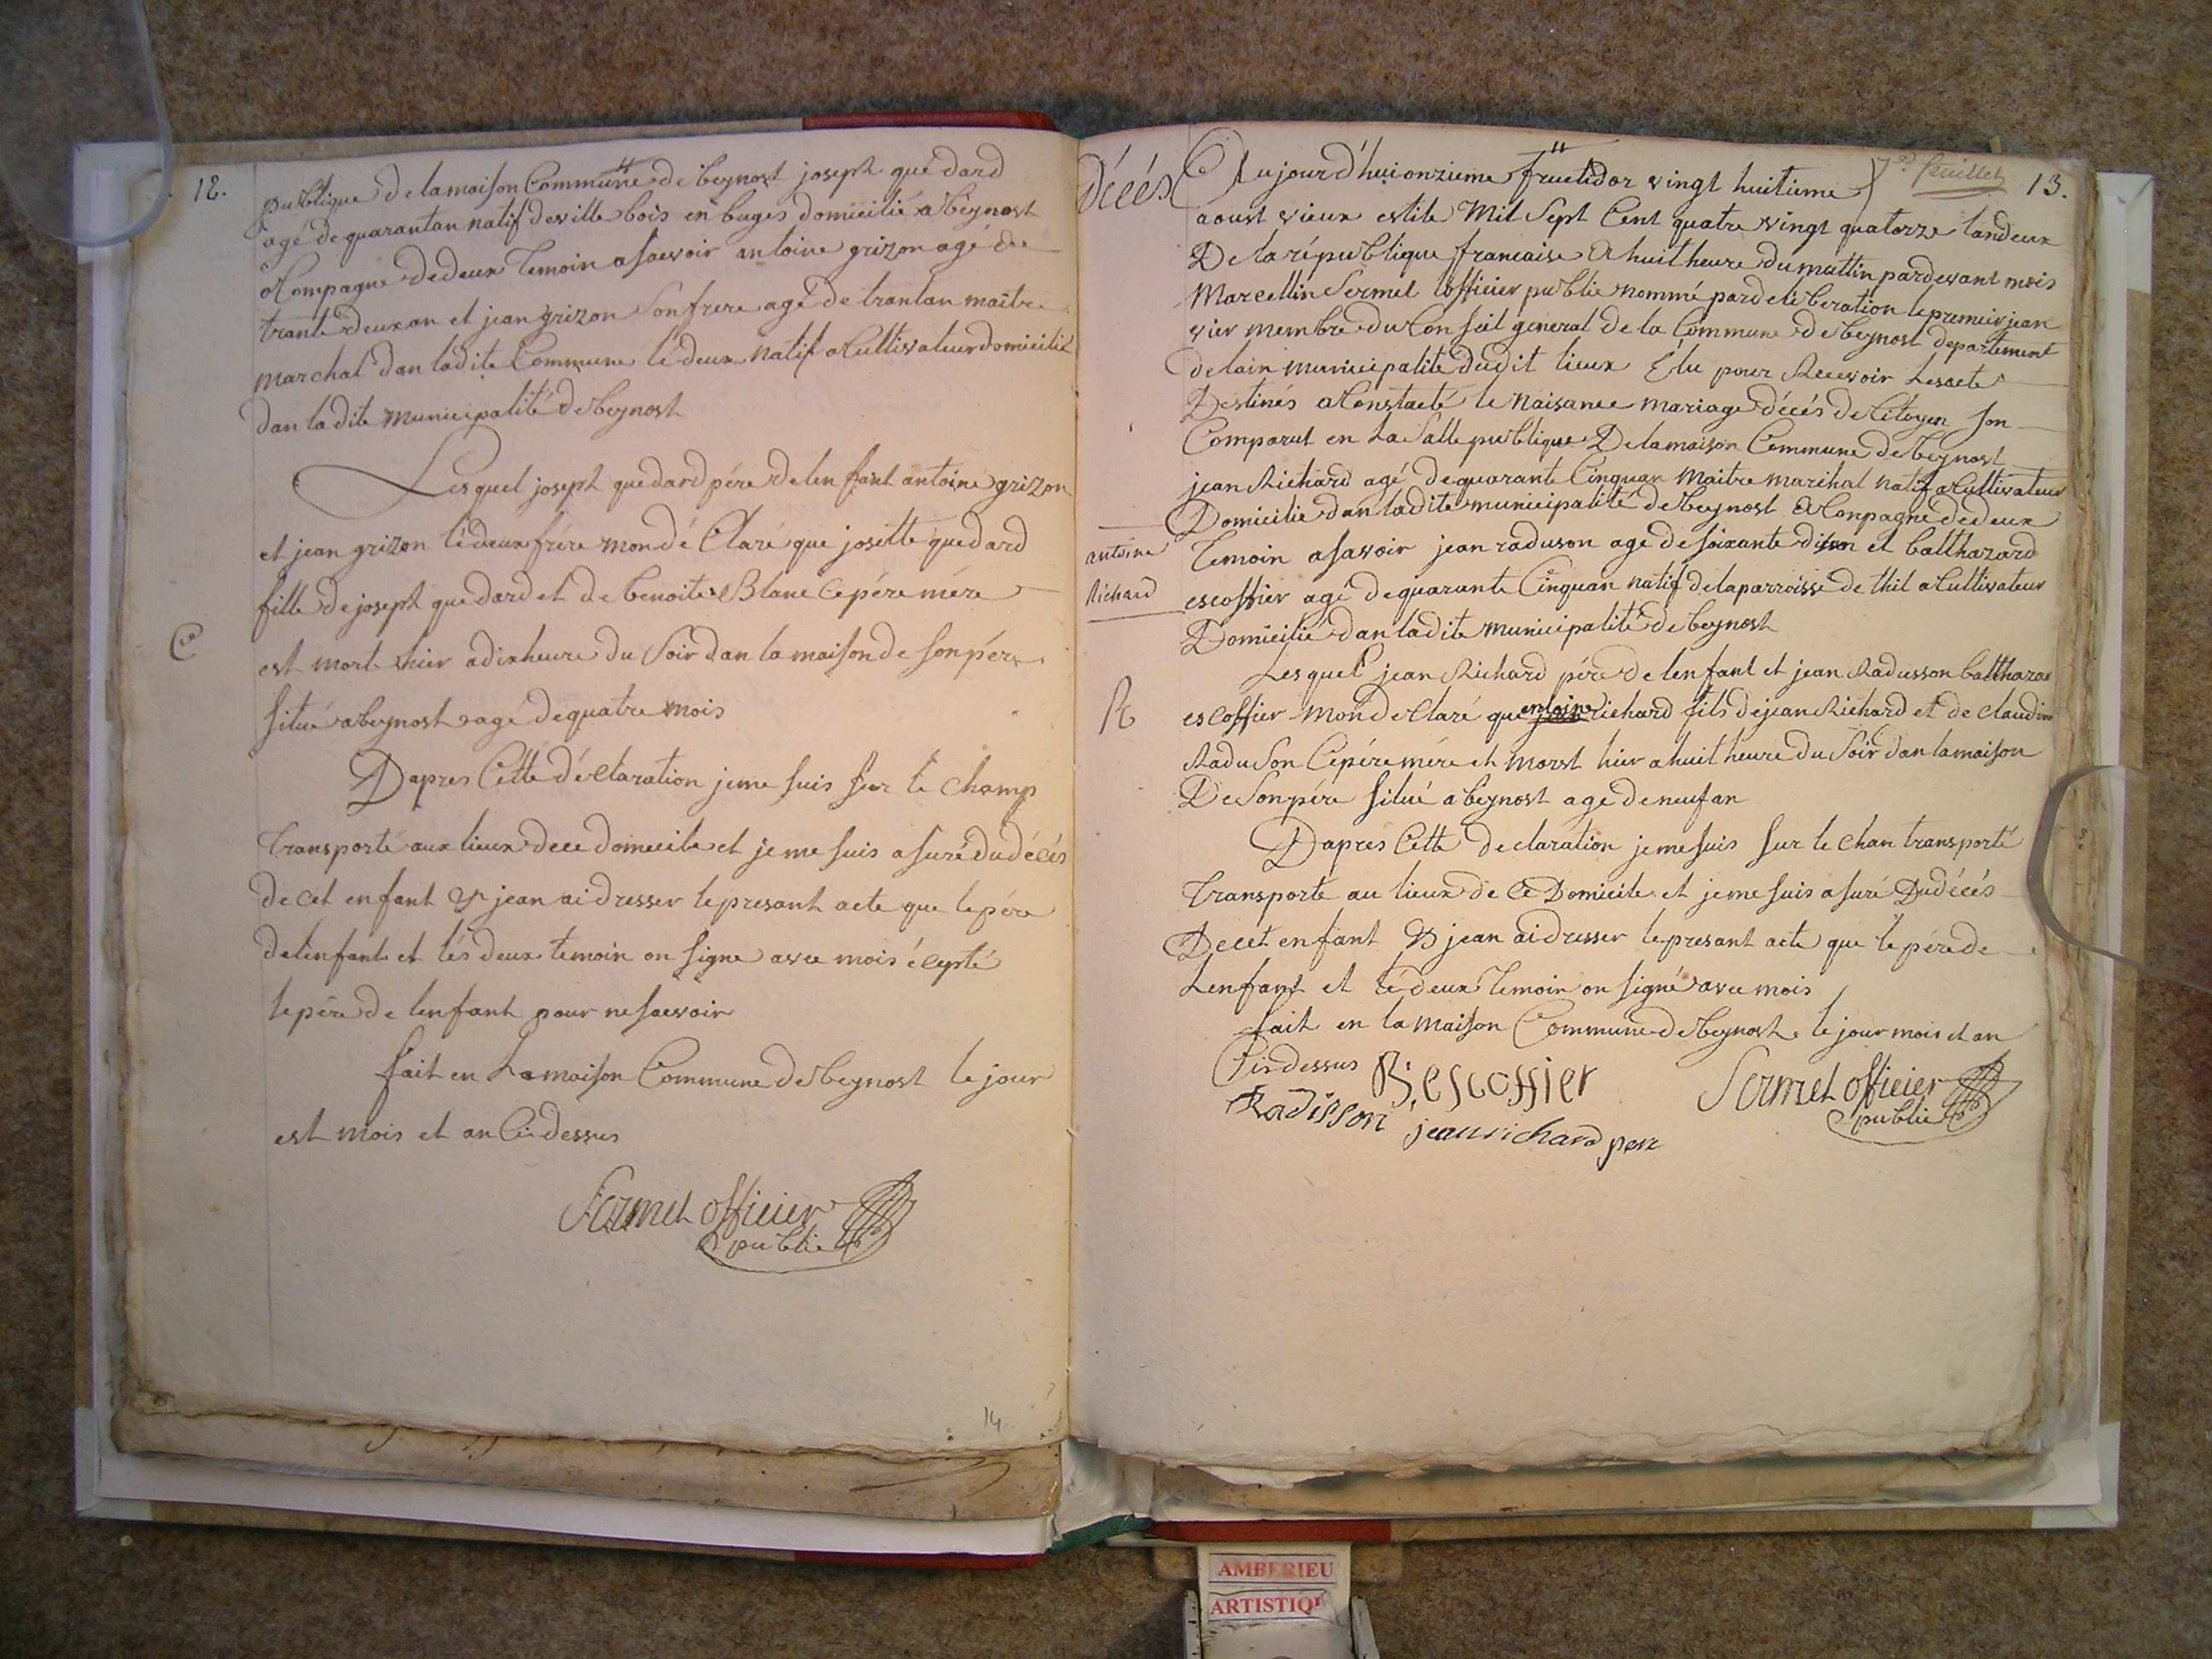 12.
publique de lamaison Commune de beynost joseph quedard
agé de quarantan natif de ville bois en buges domicilié a beynost
acompagné dedeux temoin asaevoir antoine grizon agé de
trante deuxan et jean grizon Son frere agé de trantan maitre
marchal dan ladite Commune lé deux natif acultivateur domicilié
dan ladite municipalité de beynost
Les quel joseph quedard pére de lenfant antoine grizon
et jean grizon lé deux frére mon dé Claré que josette quedard
fille de joseph quedard et de benoite Blanc Cepére mére
est morte hier adixheure du Soir dan la maison de Sonpére
Situé abeynost agé dequatre mois
Dapres Cette déClaration jeme suis Sur le champ
transporté aux lieux dece domicile et jeme suis asuré dudécés
de cet enfant & jean ai dresser le presant acte que lepére
delenfant et lés deux temoin on signe avec mois écepté
lepére de lenfant pour nesaevoir
fait en La maison Commune de beynost le jour
est mois et an Cidessus
Sermet officier
public
14
décés
7e feuillet
13.
Aujourd'hui onzieme fructidor vingt huitieme
aoust vieux estile Mil Sept Cent quatre vingt quatorze landeux
De la république francaise A huit heure du mattin pardevant mois
Marcellin Sermet lofficier public nommé par deliberation le premier jean
vier membre du Conseil general de la Commune de beynost departement
delain municipalité dudit lieux Elu pour Recevoir Lesacte
Destinés aConstaeté le Naisance mariage décés de Citoyen Son
Comparut en La Salle publique De lamaison Commune de beynost
jean Richard agé dequarante Cinquan maitre marihal natif acultivateur
Domicilié dan ladite municipalité de beynost aConpagné dedeux
temoin asavoir jean raduson agé de soixante dison et balthazard
escoffier agé dequarante Cinquan natif delaparroisse de thil acultivateur
Domicilié dan ladite municipalité de beynost
antoine
Richard
Lesquel jean Richard pére de lenfant et jean Radusson balthazar
escoffier mondeClaré que entoine Richard fils de jean Richard et de Claudine
RaduSon Cepére mére et morst hier a huit heure du Soir dan lamaison
DeSonpére Situé a beynost agé deneufan
Dapres Cette declaration jeme suis Sur le chan transporté
transporte au lieux de Ce Domicile et jeme suis asuré Dudécés
Decet enfant & jean ai dresser lepresant acte que le pére de
Lenfant et lé deux temoin on signé avec mois
fait en la maison Commune de beynost le jour mois et an
Cidessus
B. escoffier
Radisson
jean richard pere
Sermet officier
public
AMBERIEU
ARTISTIQU